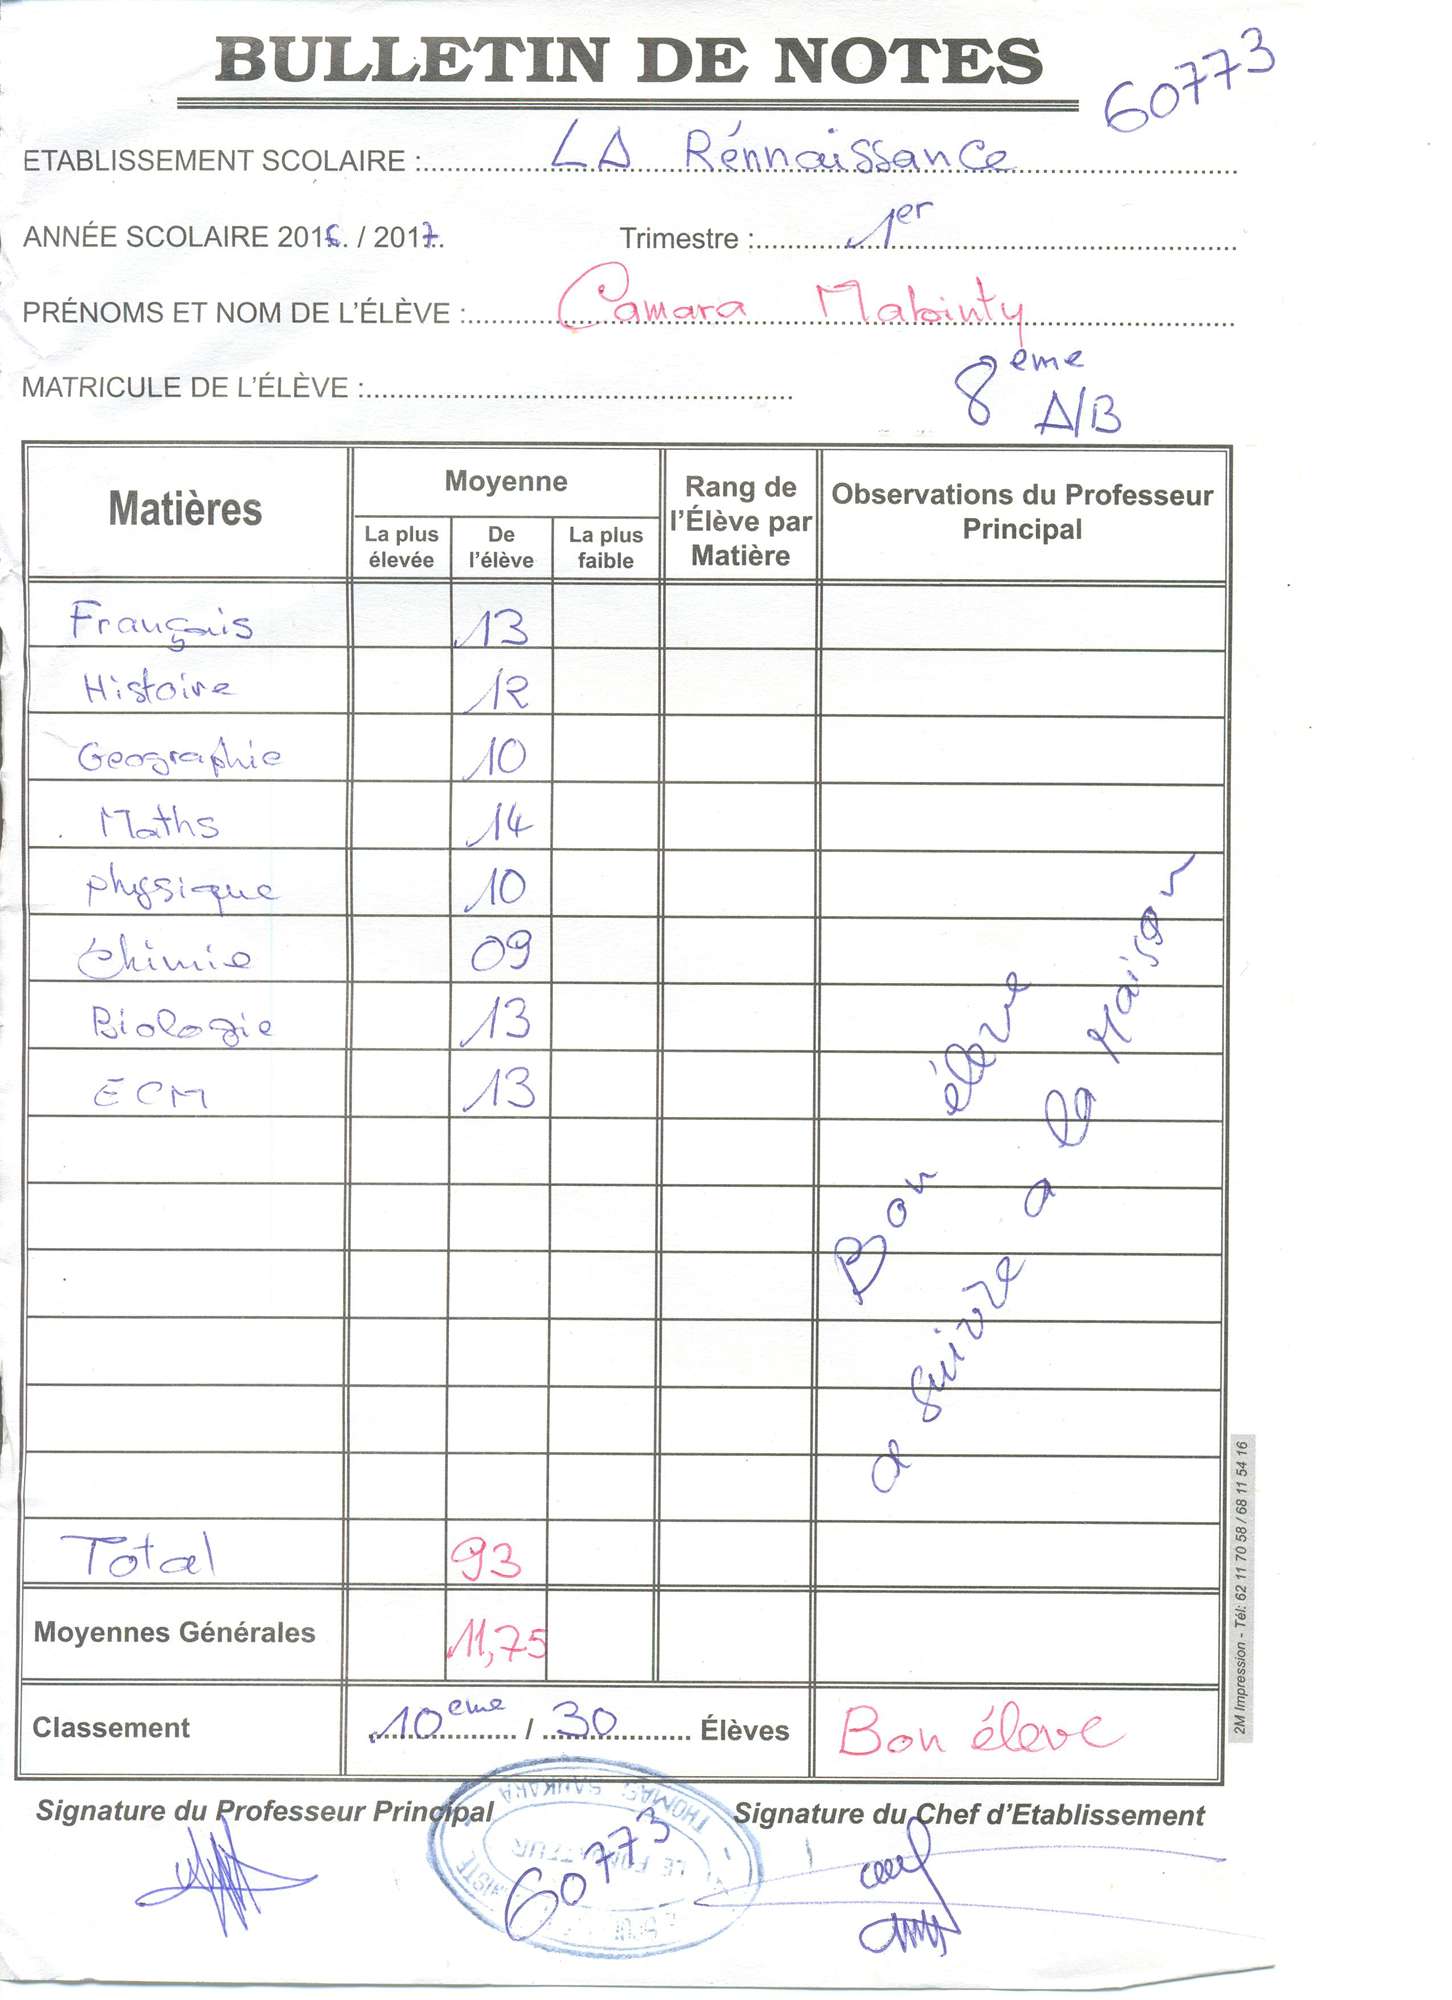 BULLETIN DE NOTES
60773
ETABLISSEMENT SCOLAIRE : LA Rénnaissance
ANNÉE SCOLAIRE 2016 / 2017 Trimestre : 1er
PRÉNOMS ET NOM DE L'ÉLÈVE : Camara Mabinty
MATRICULE DE L'ÉLÈVE :
8ème
A/B
Matières Moyenne Rang de l'Élève par Matière Observations du Professeur Principal
La plus élevée De l'élève La plus faible
Français 13
Histoire 12
Geographie 10
Maths 14
physique 10
Chimie 09
Biologie 13
ECM 13
Bon élève
a suivre a la Maison
Total 93
Moyennes Générales 11,75
Classement 10eme / 30 Élèves Bon éleve
2M Impression - Tél: 62 11 70 58 / 68 11 54 16
Signature du Professeur Principal Signature du Chef d'Etablissement
THOMAS SANKARA
LE FONDATEUR
60773